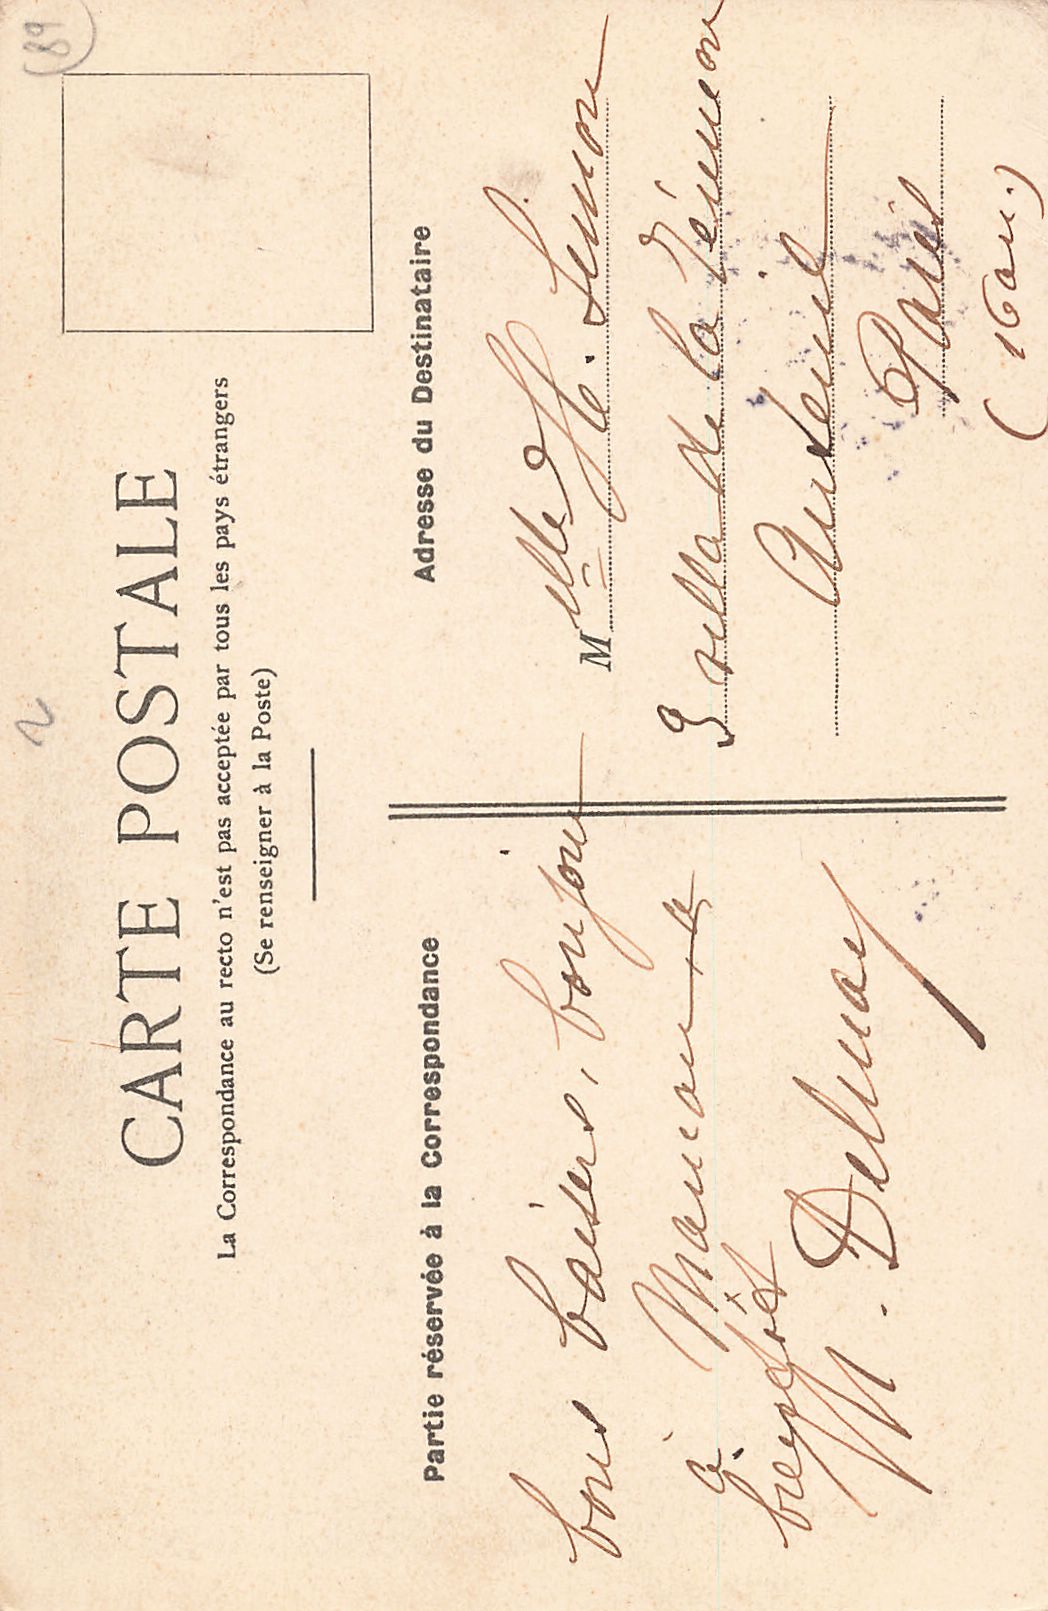 CARTE POSTALE
La Correspondance au recto n'est pas acceptée par tous les pays étrangers
(Se renseigner à la Poste)
Partie réservée à la Correspondance
bons baisers, bonjour
à Maman et à
bientôt
M. Delmas
Adresse du Destinataire
Mlle H. Simon
9 villa de la Réunion
Auteuil
Paris
(16 arr.)
89
2